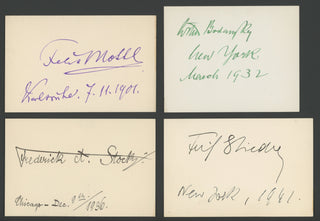 Felix Mottl
Karlsruhe, 7.11.1901.
Artur Bodanzky
New York.
March 1932
Frederick A. Stock
Chicago - Dec. 9th / 1936.
Fritz Stiedry
New York, 1941.